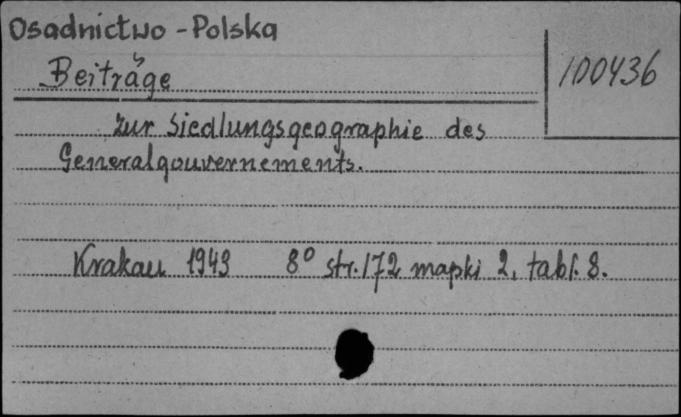 Osadnictwo - Polska
Beiträge
100436
zur Siedlungsgeographie des
Generalgouvernements.
Krakau 1943 8° str. 172 mapki 2, tabl. 8.